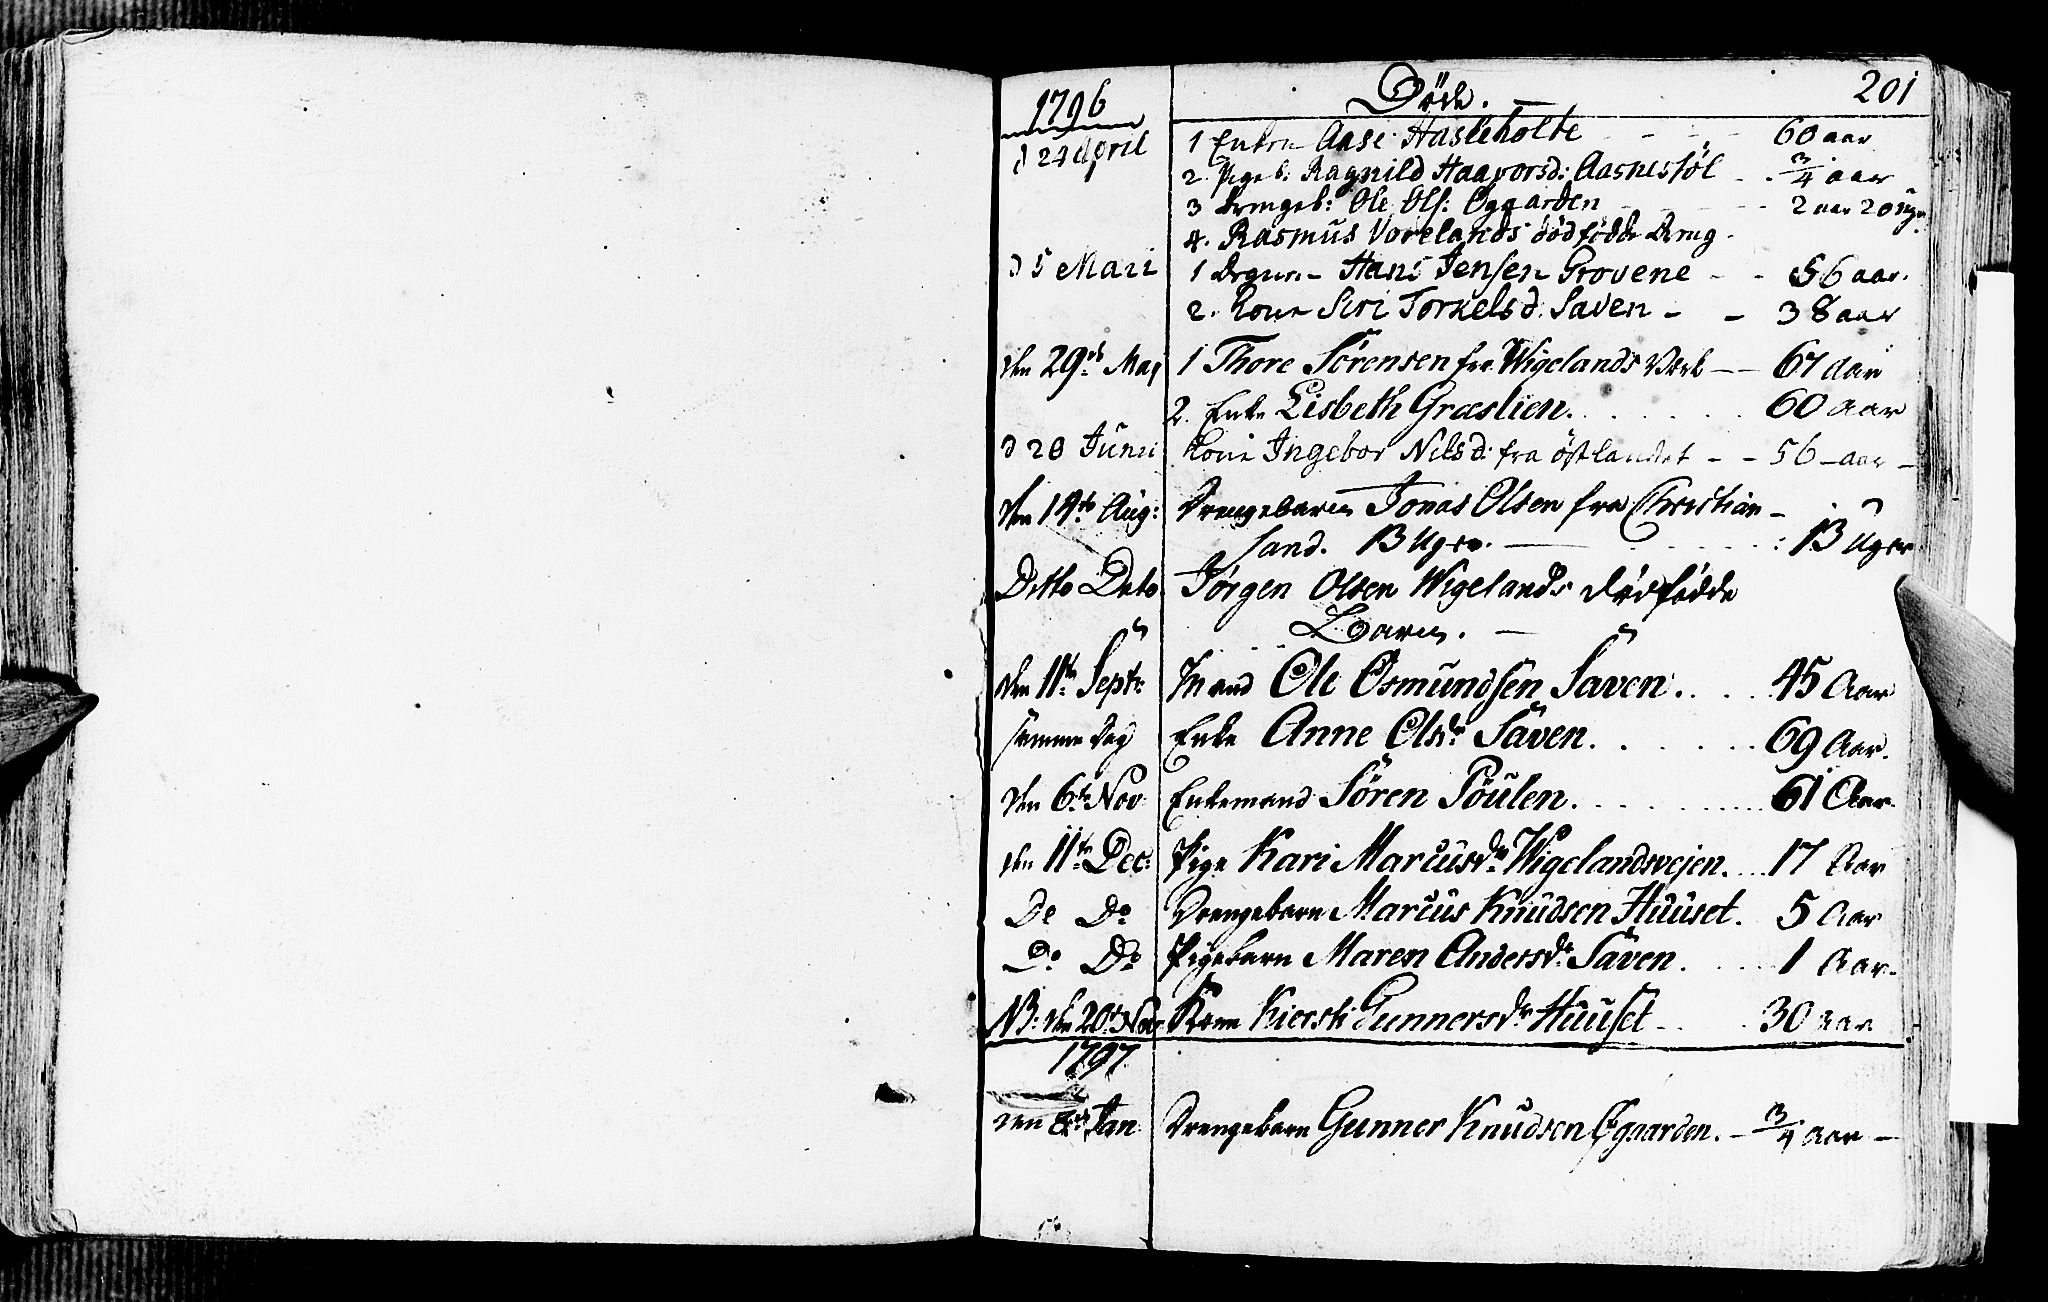 1796 Døde. 201
d 24 April 1 Enken Aase Hasleholte - - - - 60 aar
2. Pigeb: Ragnild Haavorsd: Aasnesföl - . 3/4 aar
3 Drengeb: Ole Ols: Øygarden - - - - 2 aar 20 uger
4. Rasmus Vorelands dödfödde Dreng -
d 5 Maii 1 Hans Jensen Grovene - - 56 aar.
2. Kone Siri Torkelsd. Saven - - 38 aar
den 29de Maj 1 Thore Sörensen fra Wigelands Værk - - 67 aar
2. Enke Lisbeth Græslien. . . . . . 60 Aar
d 20 Junii Kone Ingebor Nilsd: fra östlandet - - 56 - aar -
den 14de Aug: Drengebarn Jonas Olsen fra Christian-
sand. 13 Uger. - : 13 Uger
Ditto Dato Jørgen Olsen Wigelands dödfödde
Barn. -
den 11te Septr: Mand Ole Osmundsen Saven. . . . 45 Aar
samme Dag Enke Anne Olsdr Saven. . . . . . 69 Aar.
den 6te Nov: Enkemand Sören Pöulen. . . . . . . 61 Aar.
den 11te Dec: Pige Kari Marcusdr Wigelandsvejen. . . . 17 Aar
Do Do Drengebarn Marcus Knudsen Huuset. 5 Aar
Do Do Pigebarn Maren Andersdr Saven . . . . 1 Aar.
NB: den 20de Nov: Kone Kiersti Gunnersdr Huuset - . . 30 aar
1797
den 8de Jan: Drengebarn Gunner Knudsen Øgaarden. - 3/4 aar -